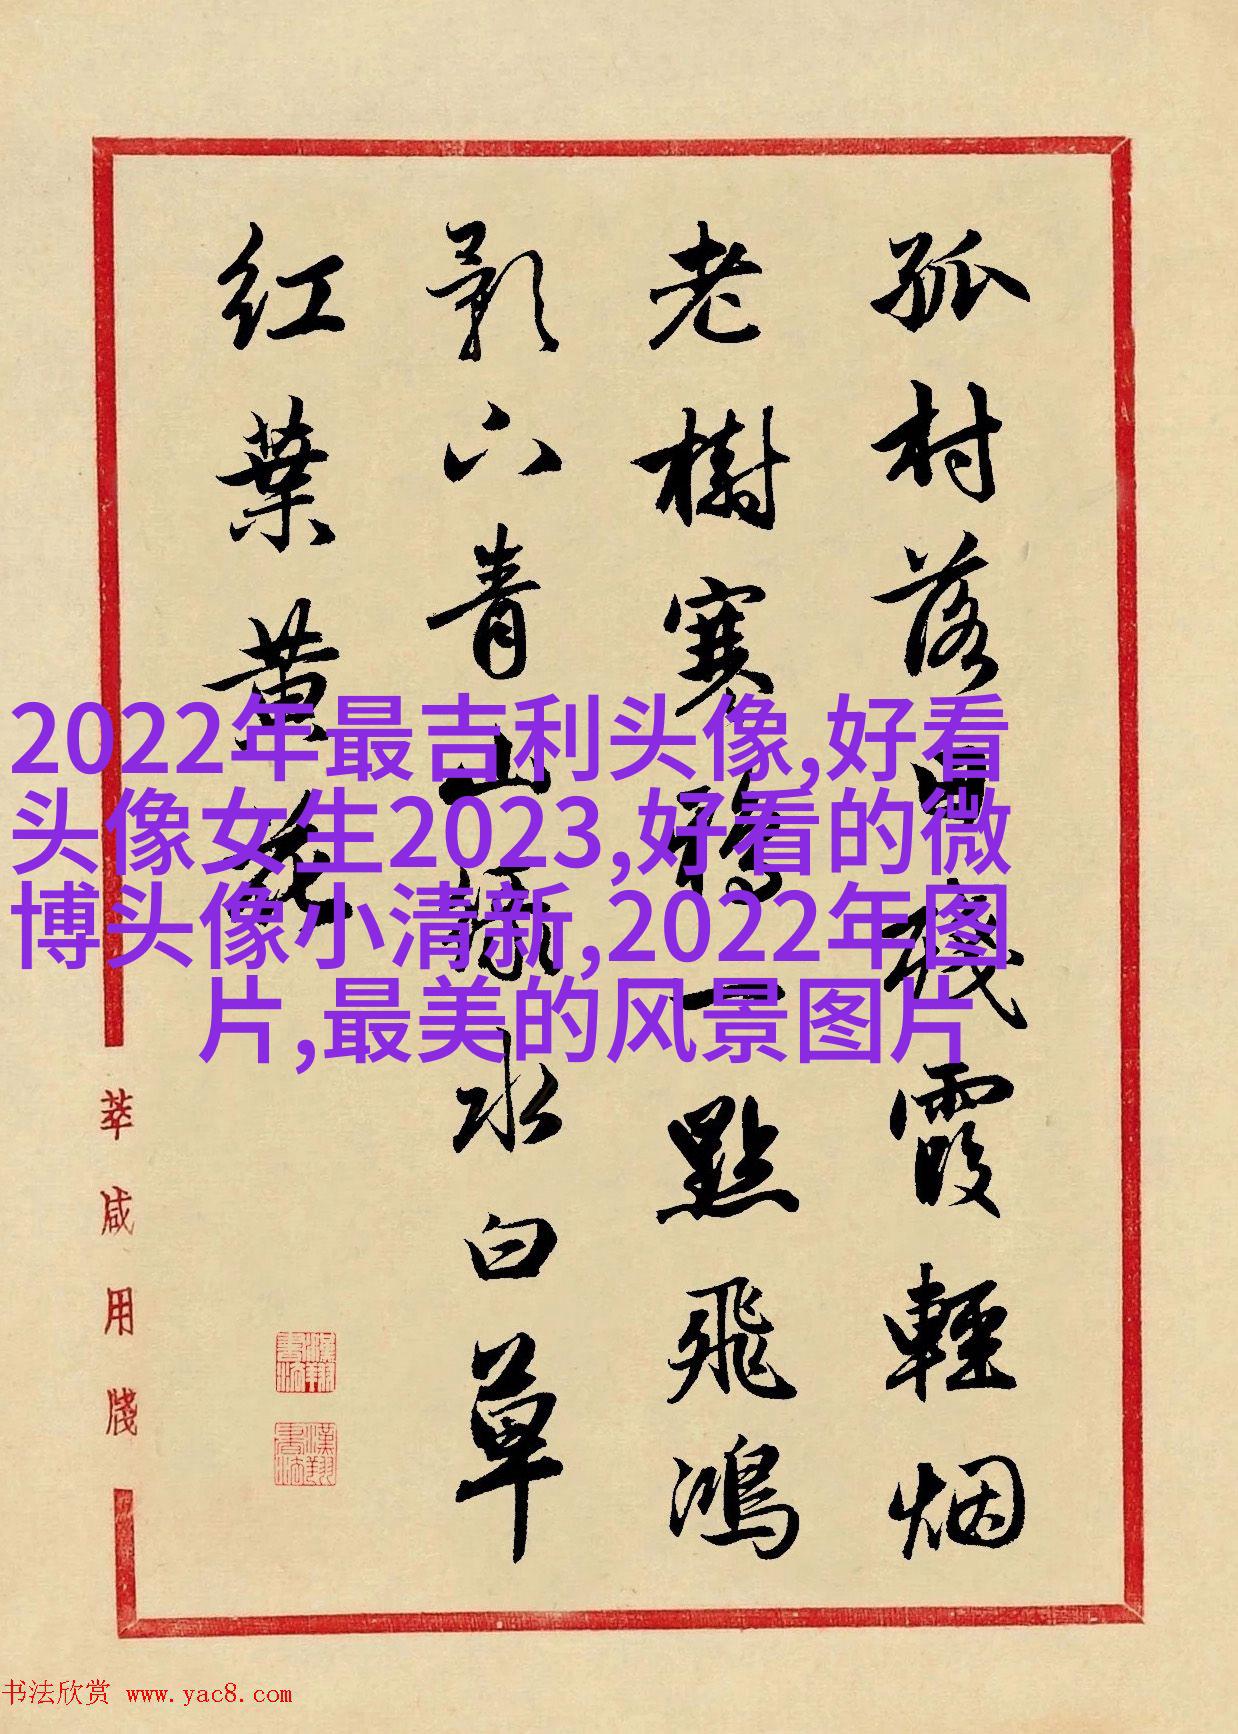 孤村落日殘霞輕烟
老樹寒鴉一點飛鴻
影下青山綠水白草
紅葉黃花
2022年最吉利头像,好看
头像女生2023,好看的微
博头像小清新,2022年图
片,最美的风景图片
萃咸用牋
书法欣赏 www.yac8.com